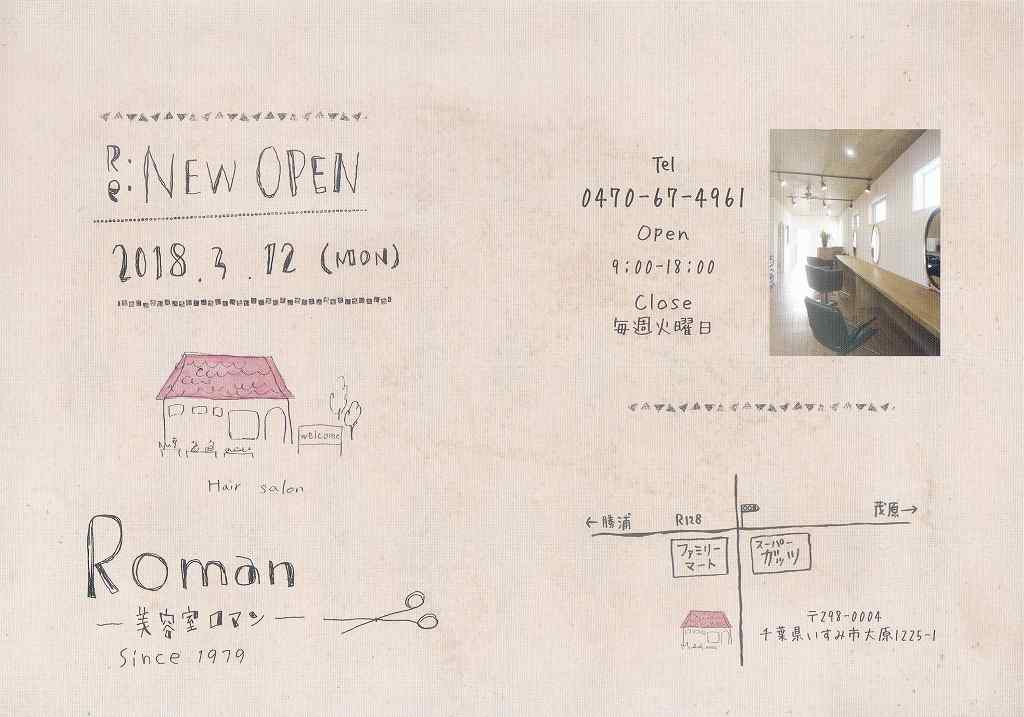 Re: NEW OPEN
2018.3.12 (MON)
welcome
Hair salon
Roman
― 美容室ロマン ―
Since 1979
Tel
0470-67-4961
Open
9:00-18:00
Close
毎週火曜日
←勝浦
R128
茂原→
ファミリー
マート
スーパー
ガッツ
〒298-0004
千葉県いすみ市大原1225-1